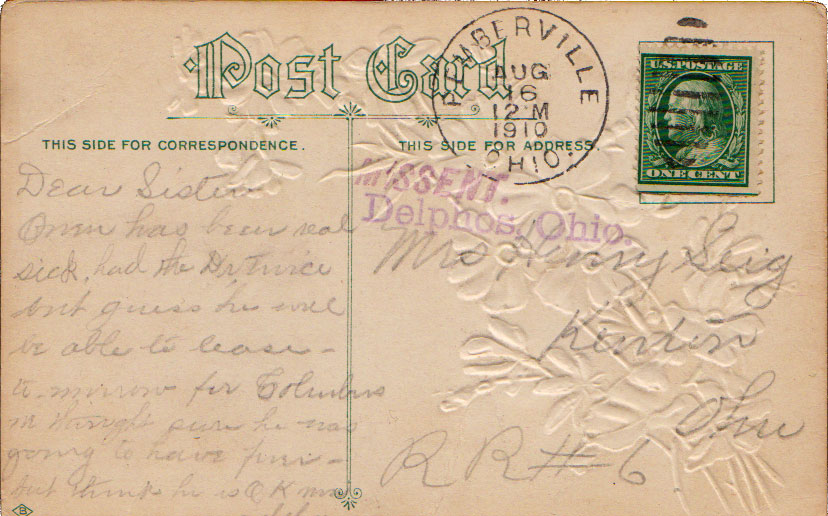 Post Card
THIS SIDE FOR CORRESPONDENCE.
THIS SIDE FOR ADDRESS.
PEMBERVILLE
AUG
16
12 M
1910
OHIO.
U.S. POSTAGE
ONE CENT
MISSENT.
Delphos, Ohio.
Dear Sister
Oren has been real
sick, had the Dr twice
but guess he will
be able to leave -
to-morrow for Columbus
thought sure he was
going to have
but think he is O K now
Mrs Henry Seig
Kenton
Ohio
R R # 6
B